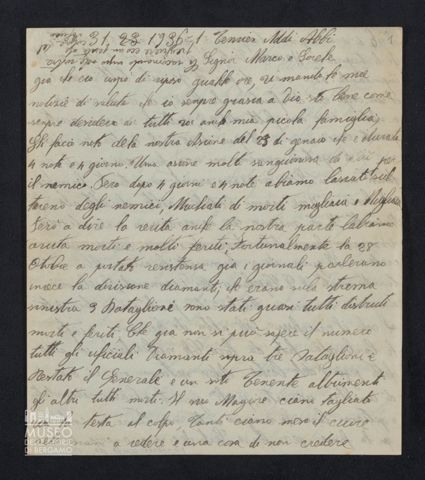 31, 22 1936 Tenzien Addi Abbi
Signor Marco e
già che ciò un pò di riposo qualche ore vi mando le mie
notizie di salute che io sempre grazia a Dio sto bene come
sempre desidero di tutti voi a mia picola famiglia,
Gli facio noto dela nostra asione del 23 di genaio che è durata
4 note e 4 giorno. Una asione molto sanguinosa per
il nemico. Pero dopo 4 giorni e 4 note abiamo lasciato sul
tereno degli nemici, Muchiati di morti migliaia e Migliaia
Però a dire la verità anche la nostra parte labiamo
avuta morti e molti feriti, Fortunalmente la 28
Otobre a portato resistensa già i giornali parlerano
invece la divisione diamanti, che erano nela strema
sinistra 3 Bataglioni sono stati quasi tutti distrutti
morti e feriti, Che già non si può sapere il numero
tutti gli uficiali Diamanti sopra tre Bataglioni è
Restato il Generale e un soto Tenente altrimenti
gli altri tutti morti. Il suo Magiore ciano tagliato
la testa al colpo, Tanti ciano meso il cuore
mani a vedere e una cosa di non credere
MUSEO
DELLE STORIE
DI BERGAMO